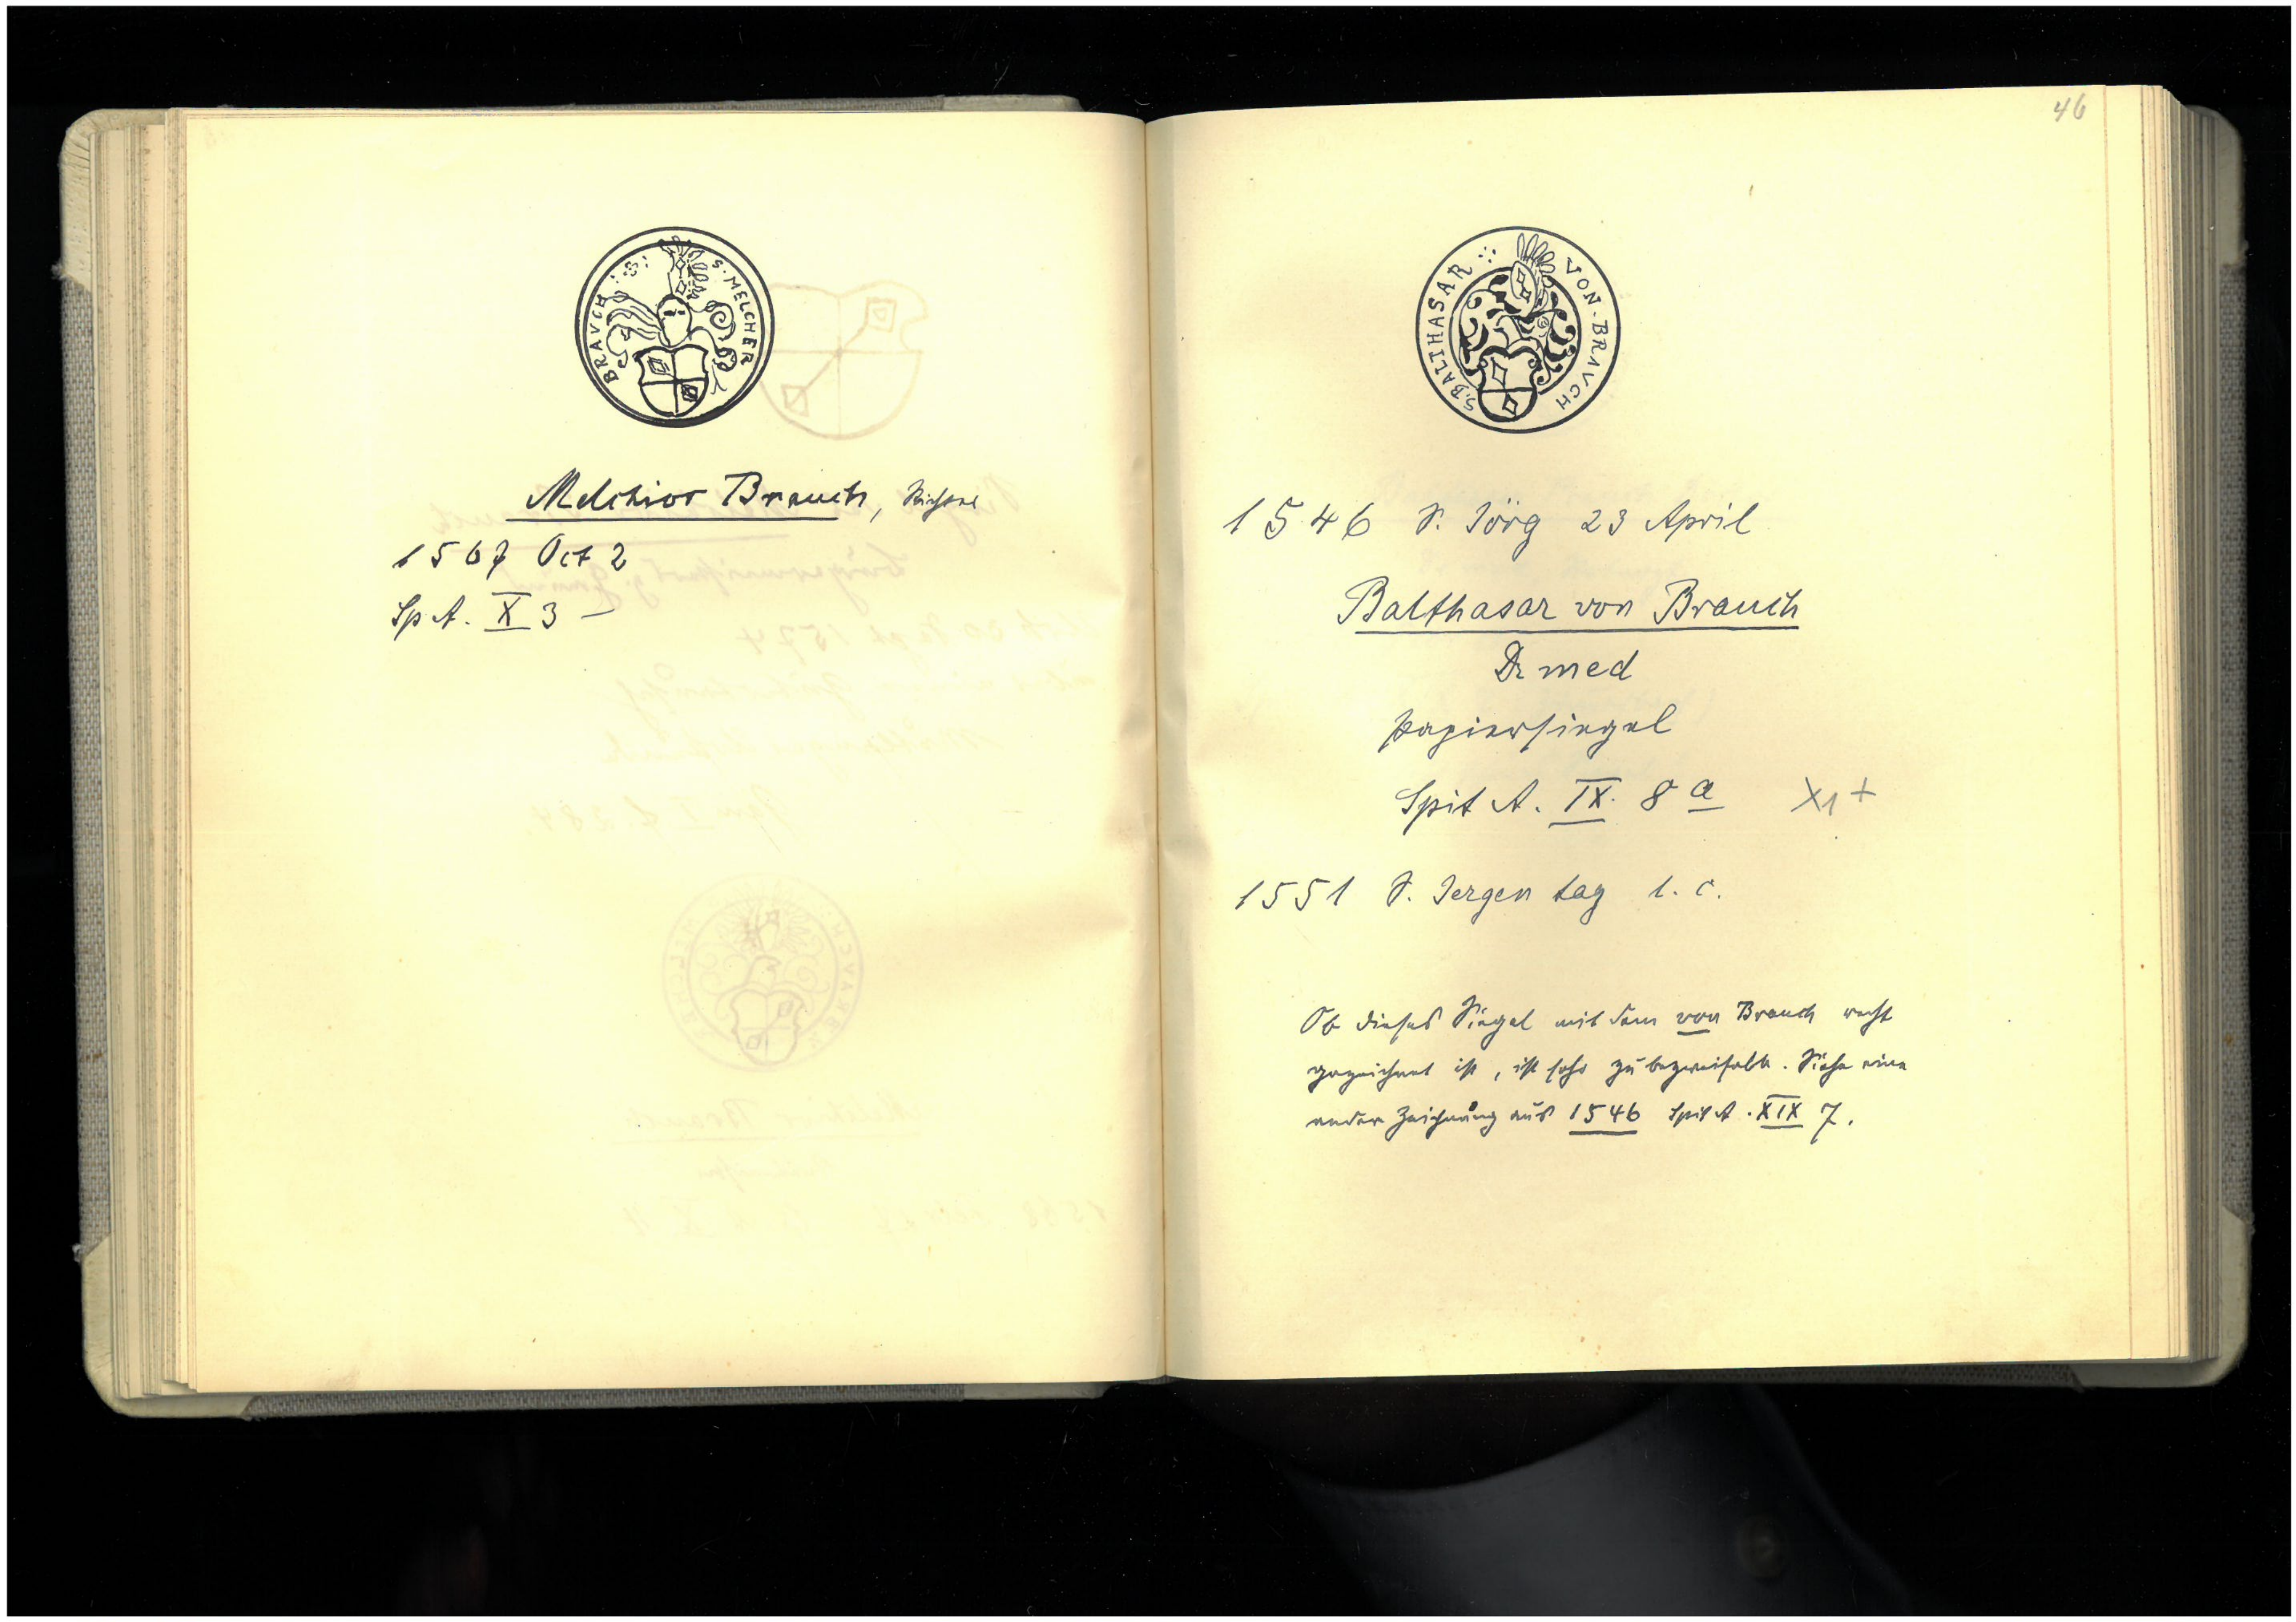 S. MELCHER BRAVCH
Melchior Brauch, Richter
1567 Oct 2
Sp A. X 3 –
46
S. BALTHASAR VON BRAVCH
1546 S. Jörg 23 April
Balthasar von Brauch
Dr med
Papiersiegel
Spit A. IX. 8 a X1 +
1551 S. Jergen tag l. c.
Ob dieses Siegel mit dem von Brauch recht
gezeichnet ist, ist sehr zu bezweifeln. Siehe eine
ander Zeichnung aus 1546 Spit A. XIX 7.